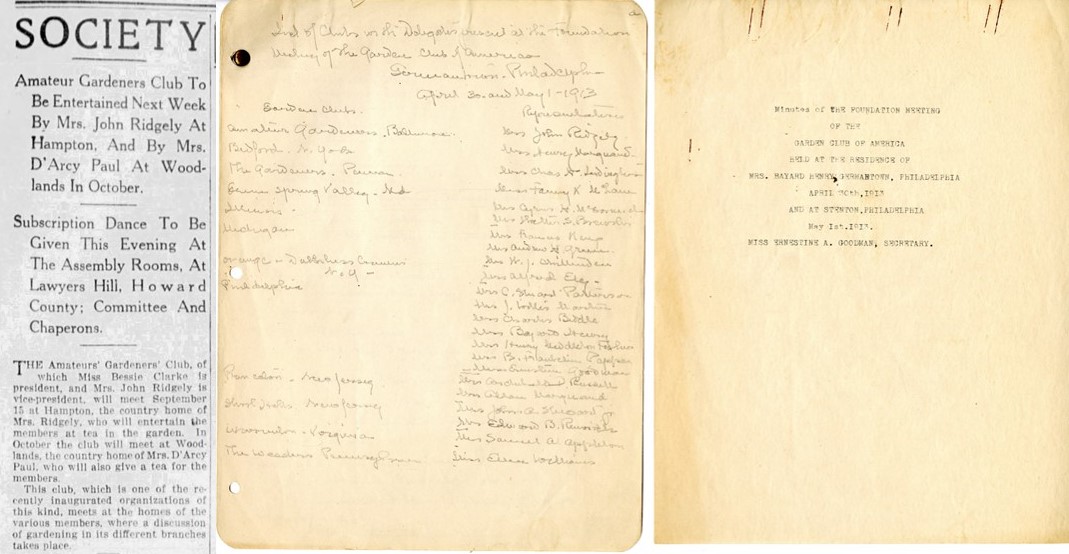 SOCIETY
Amateur Gardeners Club To
Be Entertained Next Week
By Mrs. John Ridgely At
Hampton, And By Mrs.
D'Arcy Paul At Wood-
lands In October.
Subscription Dance To Be
Given This Evening At
The Assembly Rooms, At
Lawyers Hill, Howard
County; Committee And
Chaperons.
THE Amateurs' Gardeners' Club, of
which Miss Bessie Clarke is
president, and Mrs. John Ridgely is
vice-president, will meet September
15 at Hampton, the country home of
Mrs. Ridgely, who will entertain the
members at tea in the garden. In
October the club will meet at Wood-
lands, the country home of Mrs. D'Arcy
Paul, who will also give a tea for the
members.
This club, which is one of the re-
cently inaugurated organizations of
this kind, meets at the homes of the
various members, where a discussion
of gardening in its different branches
takes place.
List of Clubs with Delegates present at the Foundation
Meeting of the Garden Club of America
Germantown. Philadelphia
April 30 and May 1-1913
Garden Clubs. Representatives
Amateur Gardeners. Baltimore. Mrs John Ridgely
Bedford. N. York Mrs Henry Marquand.
The Gardeners. Penna. Mrs Chas
Green Spring Valley. Md Miss Fanny K McLane
Illinois. Mrs Cyrus H. McCormick
Mrs
Michigan Mrs
Mrs Andrew H Green.
Orange & Mrs W. J.
N.Y- Mrs Alfred Ely.
Philadelphia Mrs C. Stuart Patterson
Mrs J. Willis Martin
Mrs Charles Biddle
Mrs Bayard Henry
Mrs Henry
Mrs B. Franklin Pepper
Miss Ernestine Goodman
Princeton. New Jersey Mrs Archibald Russell
Mrs Allan Marquand
Short Hills New Jersey Mrs John A. Stewart jr
Mrs Edward B. Renwick
Warrenton. Virginia Mrs Samuel A. Appleton
The Weeders Pennsylvania Miss Ellen Williams
Minutes of THE FOUNDATION MEETING
OF THE
GARDEN CLUB OF AMERICA
HELD AT THE RESIDENCE OF
MRS. BAYARD HENRY, GERMANTOWN, PHILADELPHIA
APRIL 30th, 1913
AND AT STENTON, PHILADELPHIA
May 1st. 1913.
MISS ERNESTINE A. GOODMAN, SECRETARY.